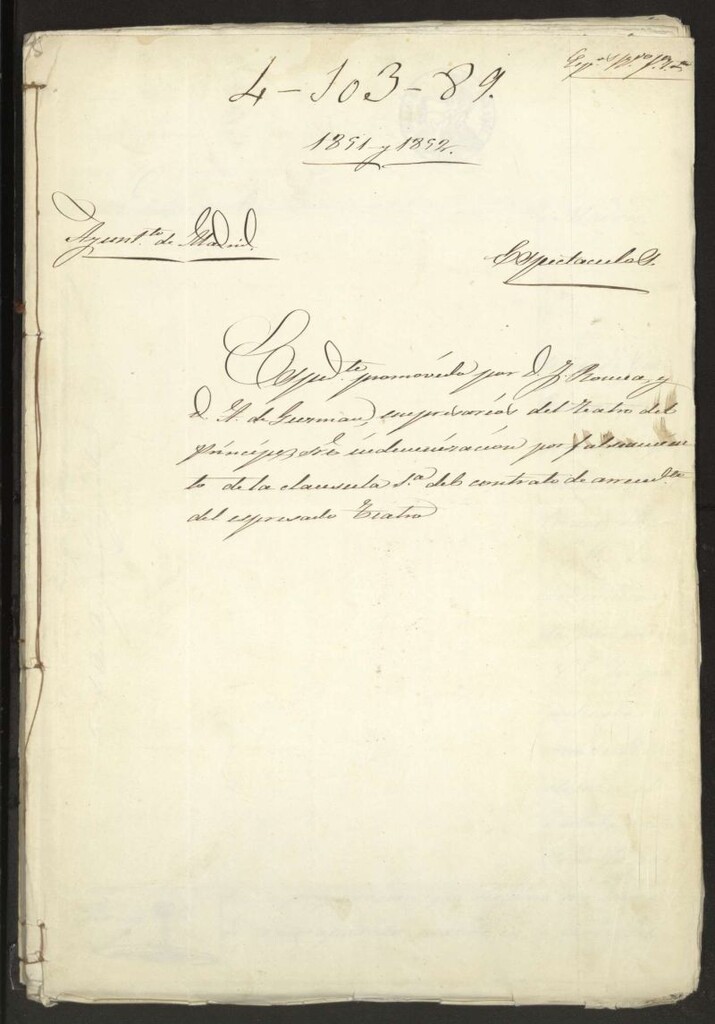 4-103-89.
1851 y 1852.
Ayunt.to de Madrid
Espectaculos.
Exped.te promovido por D. J. Romea, y
D. A. de Guzman, empresarios del teatro del
Príncipe, sre indemnizacion por falseamien-
to de la clausula 5.a del contrato de arrend.to
del espresado Teatro